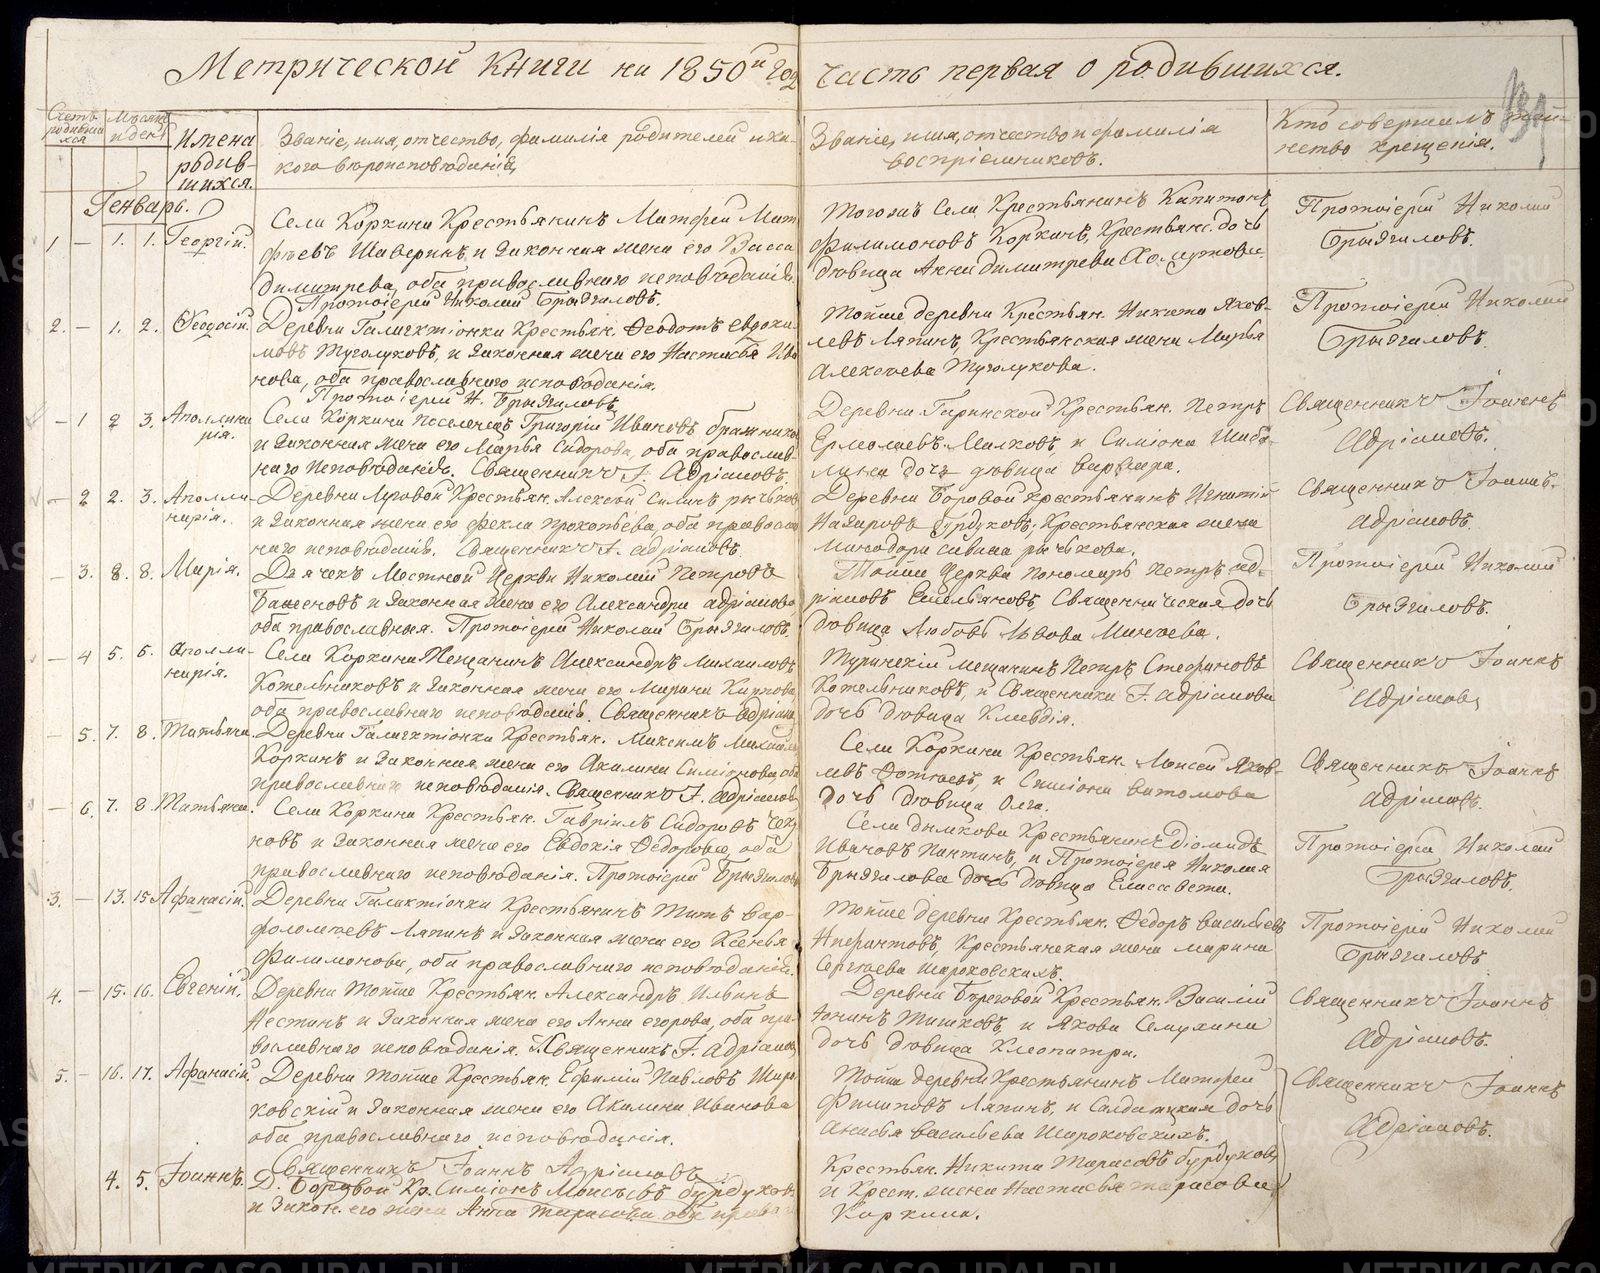 Метрической Книги на 1850й годъ часть первая о родившихся.
Счетъ родившихся
Мѣсяцъ и день
Имена родившихся.
Званіе, имя, отчество, фамилія родителей и какого вѣроисповѣданія
Званіе, имя, отчество и фамилія воспріемниковъ.
Кто совершалъ таинство крещенія.
Генварь.
1 — 1. 1. Георгій.
Села Коркина Крестьянинъ Матфей Мат
фѣевъ Шаверинъ, и законная жена его Васса
Димитрева, оба православнаго исповѣданія.
Протоіерей Николай Брызгаловъ.
Тогожъ Села Крестьянинъ Капитонъ
Филимоновъ Коркинъ, Крестьянс. дочь
дѣвица Анна Димитрева
Протоіерей Николай
Брызгаловъ.
2. — 1. 2. Ѳеодосій.
Деревни Галактіонки Крестьян. Ѳеодотъ Евдоки
мовъ Туголуковъ, и законная жена его Настасья Ива
нова, оба православнаго исповѣданія.
Протоіерей Н. Брызгаловъ
Тойже деревни Крестьян. Никита Яков-
левъ Ляпинъ, Крестьянская жена Марья
Алексѣева Туголукова.
Протоіерей Николай
Брызгаловъ.
— 1 2 3. Аполлина
рія.
Села Коркина поселенецъ Григорій Ивановъ
и законная жена его Марья Сидорова, оба православ-
наго исповѣданія. Священникъ І. Адріановъ.
Деревни Гаринской Крестьян. Петръ
Ермолаевъ Малковъ, и Симіона
дочь дѣвица Варвара.
Священникъ Іоаннъ
Адріановъ.
— 2 2. 3. Аполли-
нарія.
Деревни Луговой Крестьян. Алексѣй Силинъ Рычков
и законная жена его Фекла Прокопьева, оба православ
наго исповѣданія. Священникъ І. Адріановъ.
Деревни Боровой Крестьянинъ Игнатій
Назаровъ Бурдуковъ, Крестьянская жена
Минодора Савина Рычкова.
Священникъ Іоаннъ
Адріановъ.
— 3. 8. 8. Марія.
Дьячекъ Местной Церкви Николай Петровъ
Баженовъ и законная жена его Александра Адріанова
оба православныя. Протоіерей Николай Брызгаловъ.
Тойже Церкви Пономарь Петръ Ад-
ріановъ Емельяновъ, Священническая дочь
дѣвица Любовь Львова Минѣева.
Протоіерей Николай
Брызгаловъ.
— 4 5. 6. Аполли-
нарія.
Села Коркина Мещанинъ Александръ Михаиловъ
Котельниковъ и законная жена его Марина Карпова
оба православнаго исповѣданія. Священникъ Адріанов
Туринскій мещанинъ Петръ Стефановъ
Котельниковъ, и Священника І. Адріанова
дочь дѣвица Клавдія.
Священникъ Іоаннъ
Адріановъ
— 5. 7. 8. Татьяна.
Деревни Галактіонки Крестьян. Максимъ Михайлов
Коркинъ и законная жена его Акилина Симіонова, оба
православнаго исповѣданія. Священникъ І. Адріановъ
Села Коркина Крестьян. Моисей Яков-
левъ и Симіона
дочь дѣвица Олга.
Священникъ Іоаннъ
Адріановъ.
— 6. 7. 8. Татьяна.
Села Коркина Крестьян. Гавріилъ Сидоровъ
новъ и законная жена его Евдокія Ѳедорова, оба
православнаго исповѣданія. Протоіерей Брызгаловъ
Села Дымкова Крестьянинъ Діомидъ
Ивановъ Пантинъ, и Протоіерея Николая
Брызгалова дочь дѣвица Елисавета.
Протоіерей Николай
Брызгаловъ.
3. — 13. 15 Афанасій.
Деревни Галактіонки Крестьянинъ Титъ Вар-
фоломѣевъ Ляпинъ и законная жена его Ксенья
Филимонова, оба православнаго исповѣданія.
Тойже деревни Крестьян. Ѳедоръ Васильевъ
Крестьянская жена Марина
Сергѣева Шароховскихъ.
Протоіерей Николай
Брызгаловъ
4. — 15. 16. Евгеній.
Деревни тойже Крестьян. Александръ Ильинъ
и законная жена его Анна Егорова, оба пра-
вославнаго исповѣданія. Священникъ І. Адріанов
Деревни Береговой Крестьян. Василій
Тишковъ, и Якова Семухина
дочь дѣвица Клеопатра.
Священникъ Іоаннъ
Адріановъ.
5. — 16. 17. Афанасій.
Деревни тойже Крестьян. Ефимій Павловъ Шаро
ховскій и законная жена его Акилина Иванова
оба православнаго исповѣданія.
Священникъ Іоаннъ Адріановъ
Тойже деревни Крестьянинъ Матфей
Филиповъ Ляпинъ, и Салдатская дочь
Анисья Васильева Шароховскихъ.
Священникъ Іоаннъ
Адріановъ.
4. 5. Іоаннъ.
Д. Боровой Кр. Симіонъ Моисѣевъ Бурдуков
и закон. его жена Анна Тарасова оба правосл
Крестьян. Никита Тарасовъ Бурдуковъ
и Крест. жена Настасья Тарасова
Каркина.
METRIKI.GASO-URAL.RU